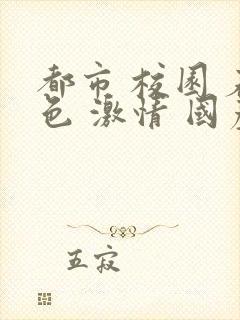 都市 校園
色 激情 國
五寂